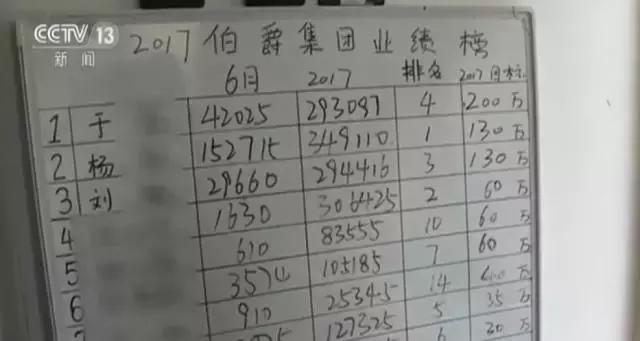 CCTV 13
新闻
2017 伯爵集团业绩榜
6月 2017 排名 2017目标
1 于 42025 293097 4 200万
2 杨 152715 349110 1 130万
3 刘 29660 294416 3 130万
4 1630 306425 2 60万
5 610 83555 10 60万
6 105185 7 60万
910 25345 14 万
127325 5 35万
6 30万